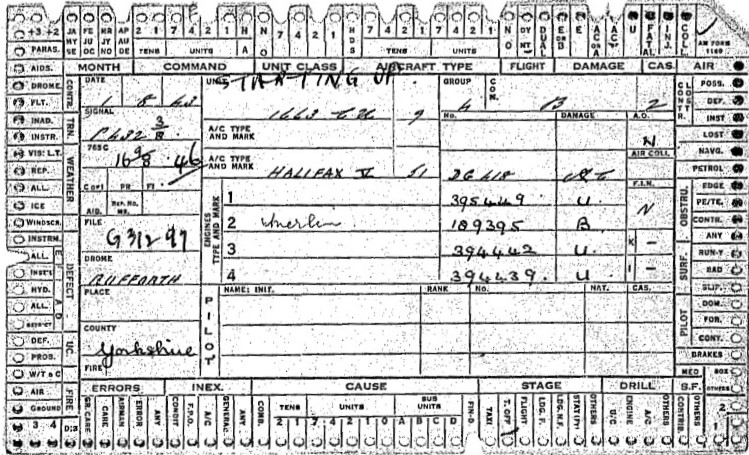 +3 +2 JA MY SE FE JU OC MR JY NO AP AU DE 2 1 7 4 2 1 H A N O 7 4 2 1 H D S 7 4 2 1 7 4 2 1 N O DY NT DUAL E OR B E ACC ACC U FATAL INJ. COLL AM FORM
PARAS. TENS UNITS TENS UNITS TENS UNITS
AIDS. MONTH COMMAND UNIT CLASS AIRCRAFT TYPE FLIGHT DAMAGE CAS. AIR
STARTING UP
DROME. CONTR. DATE UNIT GROUP CON. CONTR. CLOST. POSS.
FLT. 1 8 43 1663 CU 9 4 B 2 DEF.
INAD. TRN. SIGNAL A/C TYPE AND MARK No. DAMAGE A.O. INST
INSTR. P432 3/8 N LOST
VIS: L.T. WEATHER 765C A/C TYPE AND MARK AIR COLL NAVG.
REP. 16 9/8 46 HALIFAX V 51 DG PETROL
ALL. Cat PR FI. ENGINES TYPE AND MARK 1 395449 U. F.I.N. OBSTRU. EDGE
ICE AID. REP. NO. 2 Merlin 189395 B N PE/TE.
WINDSCR. FILE CONTR.
INSTRM. DEFECT G31297 3 394442 U. K – ANY
ALL. DROME SURF. RUN-Y
INST'L RUFFORTH 4 394439. U I – BAD
HYD. PLACE PILOT NAME: INIT. RANK No. NAT. CAS. PILOT SLIP.
ALL. DOM.
RESTRICT COUNTY FOR.
DEF. UC. Yorkshire CONT.
PROB. FIRE BRAKES
W/T & C MED BOX
AIR FIRE ERRORS INEX. CAUSE STAGE DRILL S.F. OTHERS
GROUND GR. CARE CARE AIRMAN ERROR ANY CONDIT F.P.O. A/C GENERAL ANY COMB. TENS UNITS SUB UNITS FIN-D. TAXI T. OFF FLIGHT LDG. F. LDG. N.F. STAT(PY) OTHERS U/C ENGINE A/C OTHERS CONTRIB. OTHERS 2
3 4 DIS 2 1 7 4 2 1 0 A B C D 1